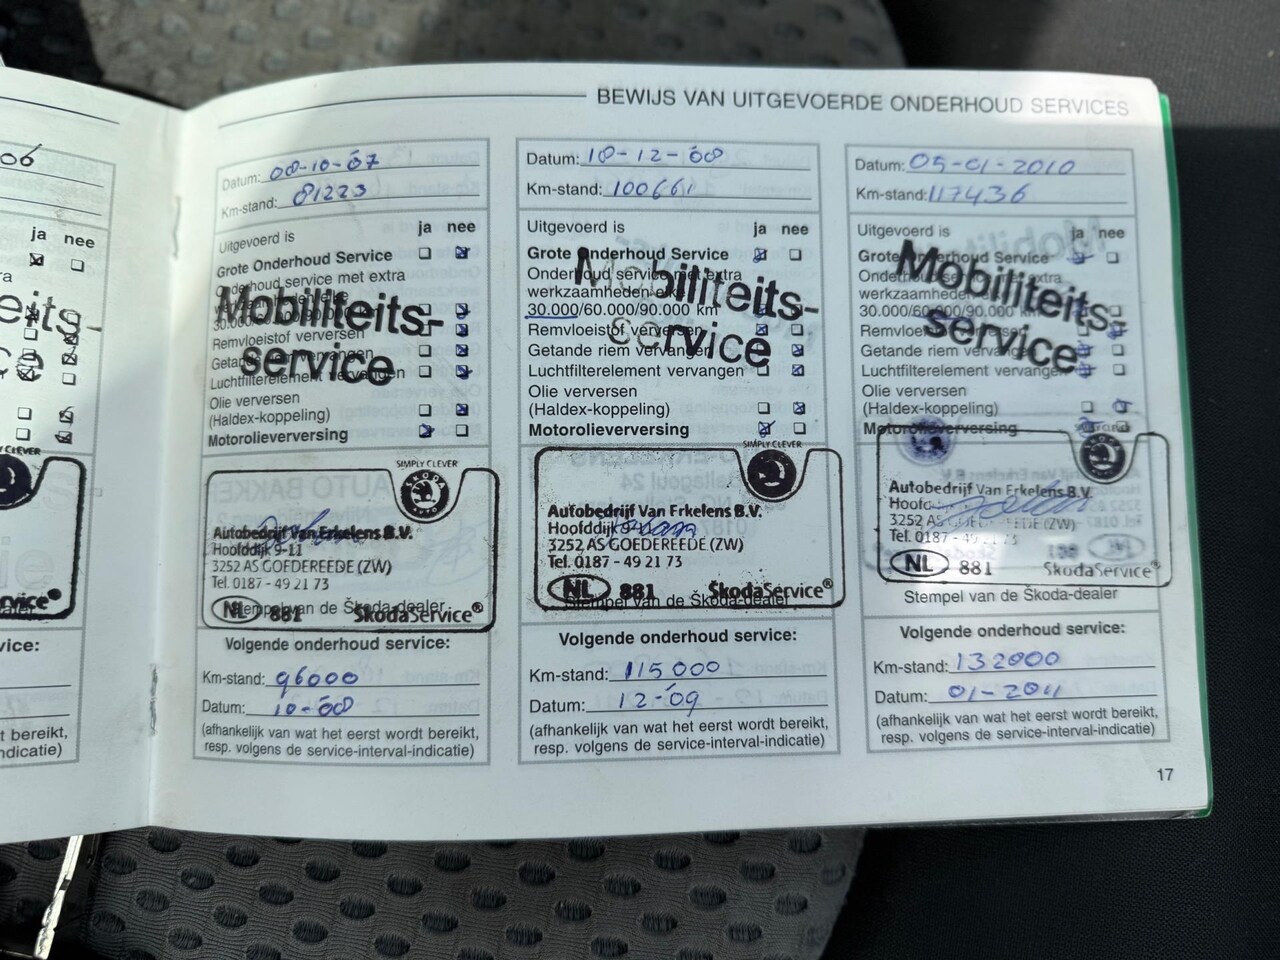 06
ja nee
BEWIJS VAN UITGEVOERDE ONDERHOUD SERVICES
Datum: 08-10-'07
Km-stand: 81223
Uitgevoerd is ja nee
Grote Onderhoud Service
Onderhoud service met extra
30.000
Remvloeistof verversen
Getande riem vervangen
Luchtfilterelement vervangen
Olie verversen
(Haldex-koppeling)
Motorolieverversing
Mobiliteits-
service
SIMPLY CLEVER
SKODA
AUTO
Autobedrijf Van Erkelens B.V.
Hoofddijk 9-11
3252 AS GOEDEREEDE (ZW)
Tel. 0187 - 49 21 73
NL 881 ŠkodaService®
Stempel van de Škoda-dealer
Volgende onderhoud service:
Km-stand: 96000
Datum: 10-'08
(afhankelijk van wat het eerst wordt bereikt,
resp. volgens de service-interval-indicatie)
Datum: 10-12-'08
Km-stand: 100661
Uitgevoerd is ja nee
Grote Onderhoud Service
Onderhoud service met extra
werkzaamheden elke
30.000/60.000/90.000 km
Remvloeistof verversen
Getande riem vervangen
Luchtfilterelement vervangen
Olie verversen
(Haldex-koppeling)
Motorolieverversing
Mobiliteits-
service
SIMPLY CLEVER
Autobedrijf Van Erkelens B.V.
Hoofddijk 9-11
3252 AS GOEDEREEDE (ZW)
Tel. 0187 - 49 21 73
NL 881 ŠkodaService®
Stempel van de Škoda-dealer
Volgende onderhoud service:
Km-stand: 115000
Datum: 12-'09
(afhankelijk van wat het eerst wordt bereikt,
resp. volgens de service-interval-indicatie)
Datum: 05-01-2010
Km-stand: 117436
Uitgevoerd is ja nee
Grote Onderhoud Service
Onderhoud service met extra
werkzaamheden elke
30.000/60.000/90.000 km
Remvloeistof verversen
Getande riem vervangen
Luchtfilterelement vervangen
Olie verversen
(Haldex-koppeling)
Motorolieverversing
Mobiliteits-
service
Autobedrijf Van Erkelens B.V.
3252 AS GOEDEREEDE (ZW)
Tel. 0187 - 49 21 73
NL 881 ŠkodaService®
Stempel van de Škoda-dealer
Volgende onderhoud service:
Km-stand: 132000
Datum: 01-2011
(afhankelijk van wat het eerst wordt bereikt,
resp. volgens de service-interval-indicatie)
17